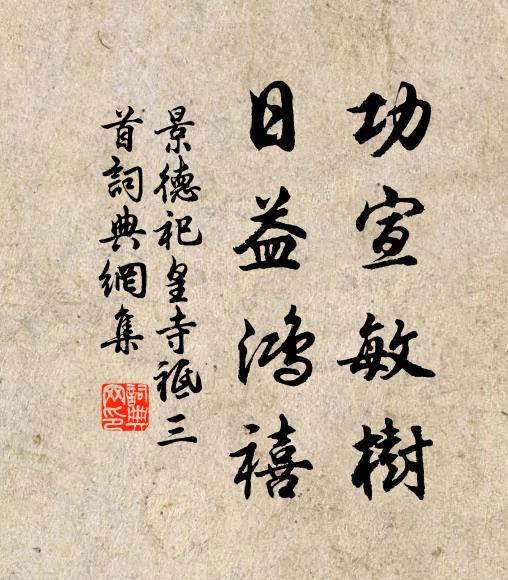 功宣敏樹
日益鴻禧
景德祀皇寺祗三
首詞典網集
詞典网印